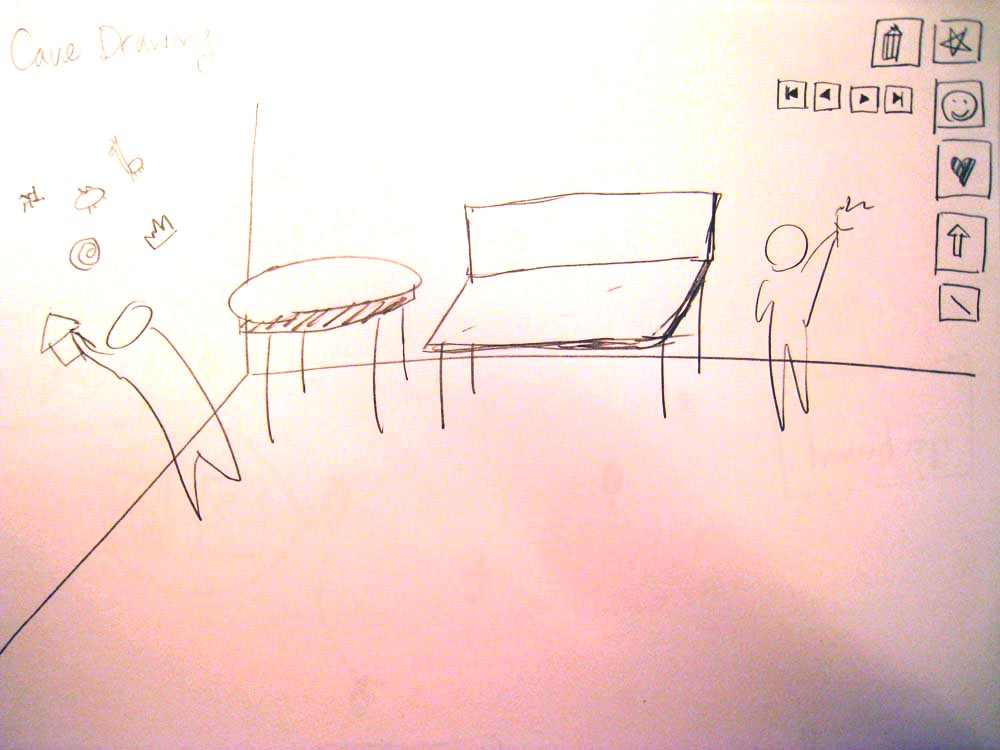 Cave Drawing